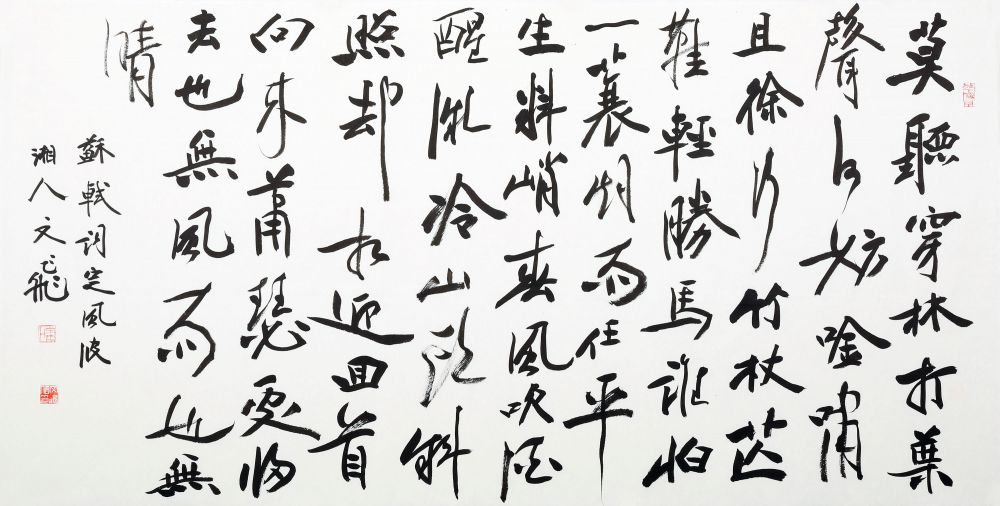 莫聽穿林打葉
聲何妨唫嘯
且徐行竹杖芒
鞋輕勝馬誰怕
一蓑烟雨任平
生料峭春風吹酒
醒微冷山頭斜
照却相迎回首
向来蕭瑟處歸
去也無風雨也無
晴
蘇軾詞定風波
湘人文飛